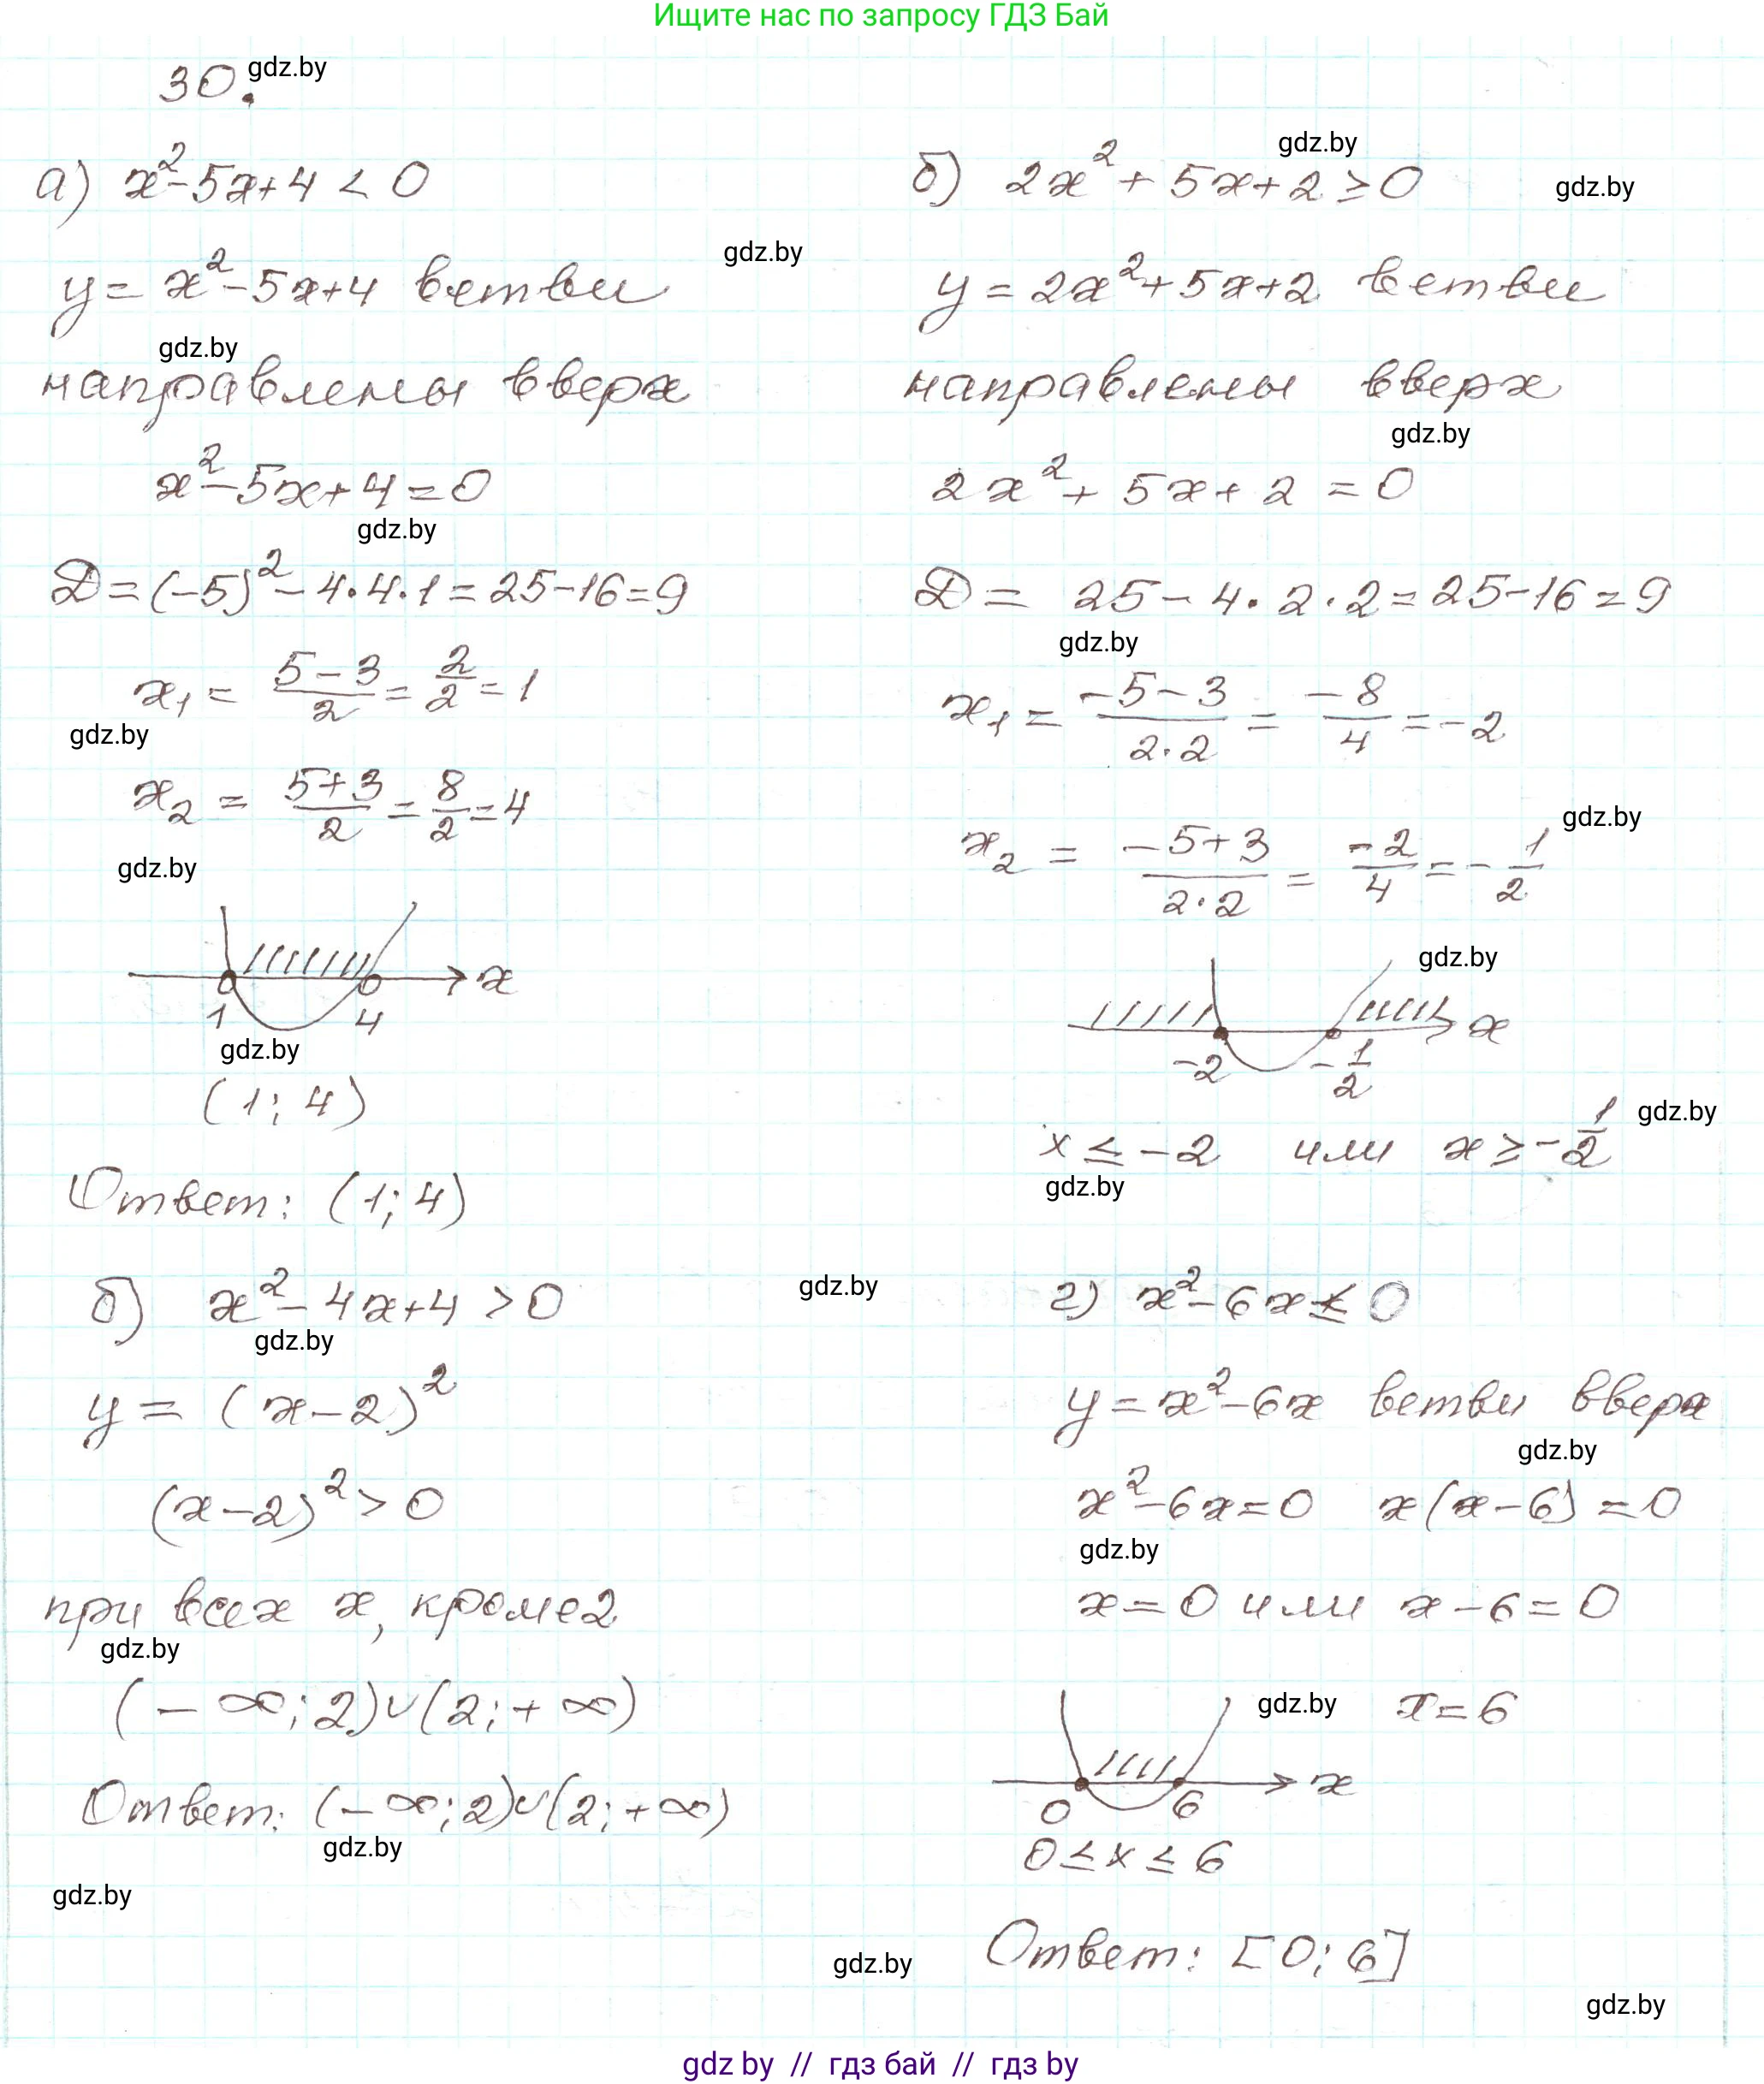 Ищите нас по запросу ГДЗ Бай
30.
gdz.by
а) x²-5x+4 < 0
y = x²-5x+4 ветви
gdz.by
gdz.by
направлены вверх
x²-5x+4=0
gdz.by
D=(-5)²-4·4·1=25-16=9
x₁ = (5-3)/2 = 2/2 = 1
gdz.by
x₂ = (5+3)/2 = 8/2 = 4
gdz.by
x
1 4
gdz.by
(1; 4)
Ответ: (1; 4)
gdz.by
б) 2x² + 5x+2 ≥ 0
gdz.by
y = 2x²+5x+2 ветви
направлены вверх
gdz.by
2x²+ 5x+ 2 = 0
D = 25-4·2·2=25-16=9
gdz.by
x₁ = (-5-3)/(2·2) = -8/4 = -2
gdz.by
x₂ = (-5+3)/(2·2) = -2/4 = -1/2
gdz.by
x
-2 -1/2
gdz.by
x ≤ -2 или x ≥ -1/2
gdz.by
б) x²-4x+4 > 0
gdz.by
gdz.by
y = (x-2)²
(x-2)² > 0
при всех x, кроме 2
gdz.by
(-∞; 2)∪(2; +∞)
Ответ: (-∞; 2)∪(2; +∞)
gdz.by
gdz.by
г) x²-6x ≤ 0
y=x²-6x ветви вверх
gdz.by
x²-6x=0 x(x-6)=0
gdz.by
x=0 или x-6=0
gdz.by
x=6
x
0 6
0≤x≤6
gdz.by
Ответ: [0; 6]
gdz.by
gdz by // гдз бай // гдз by